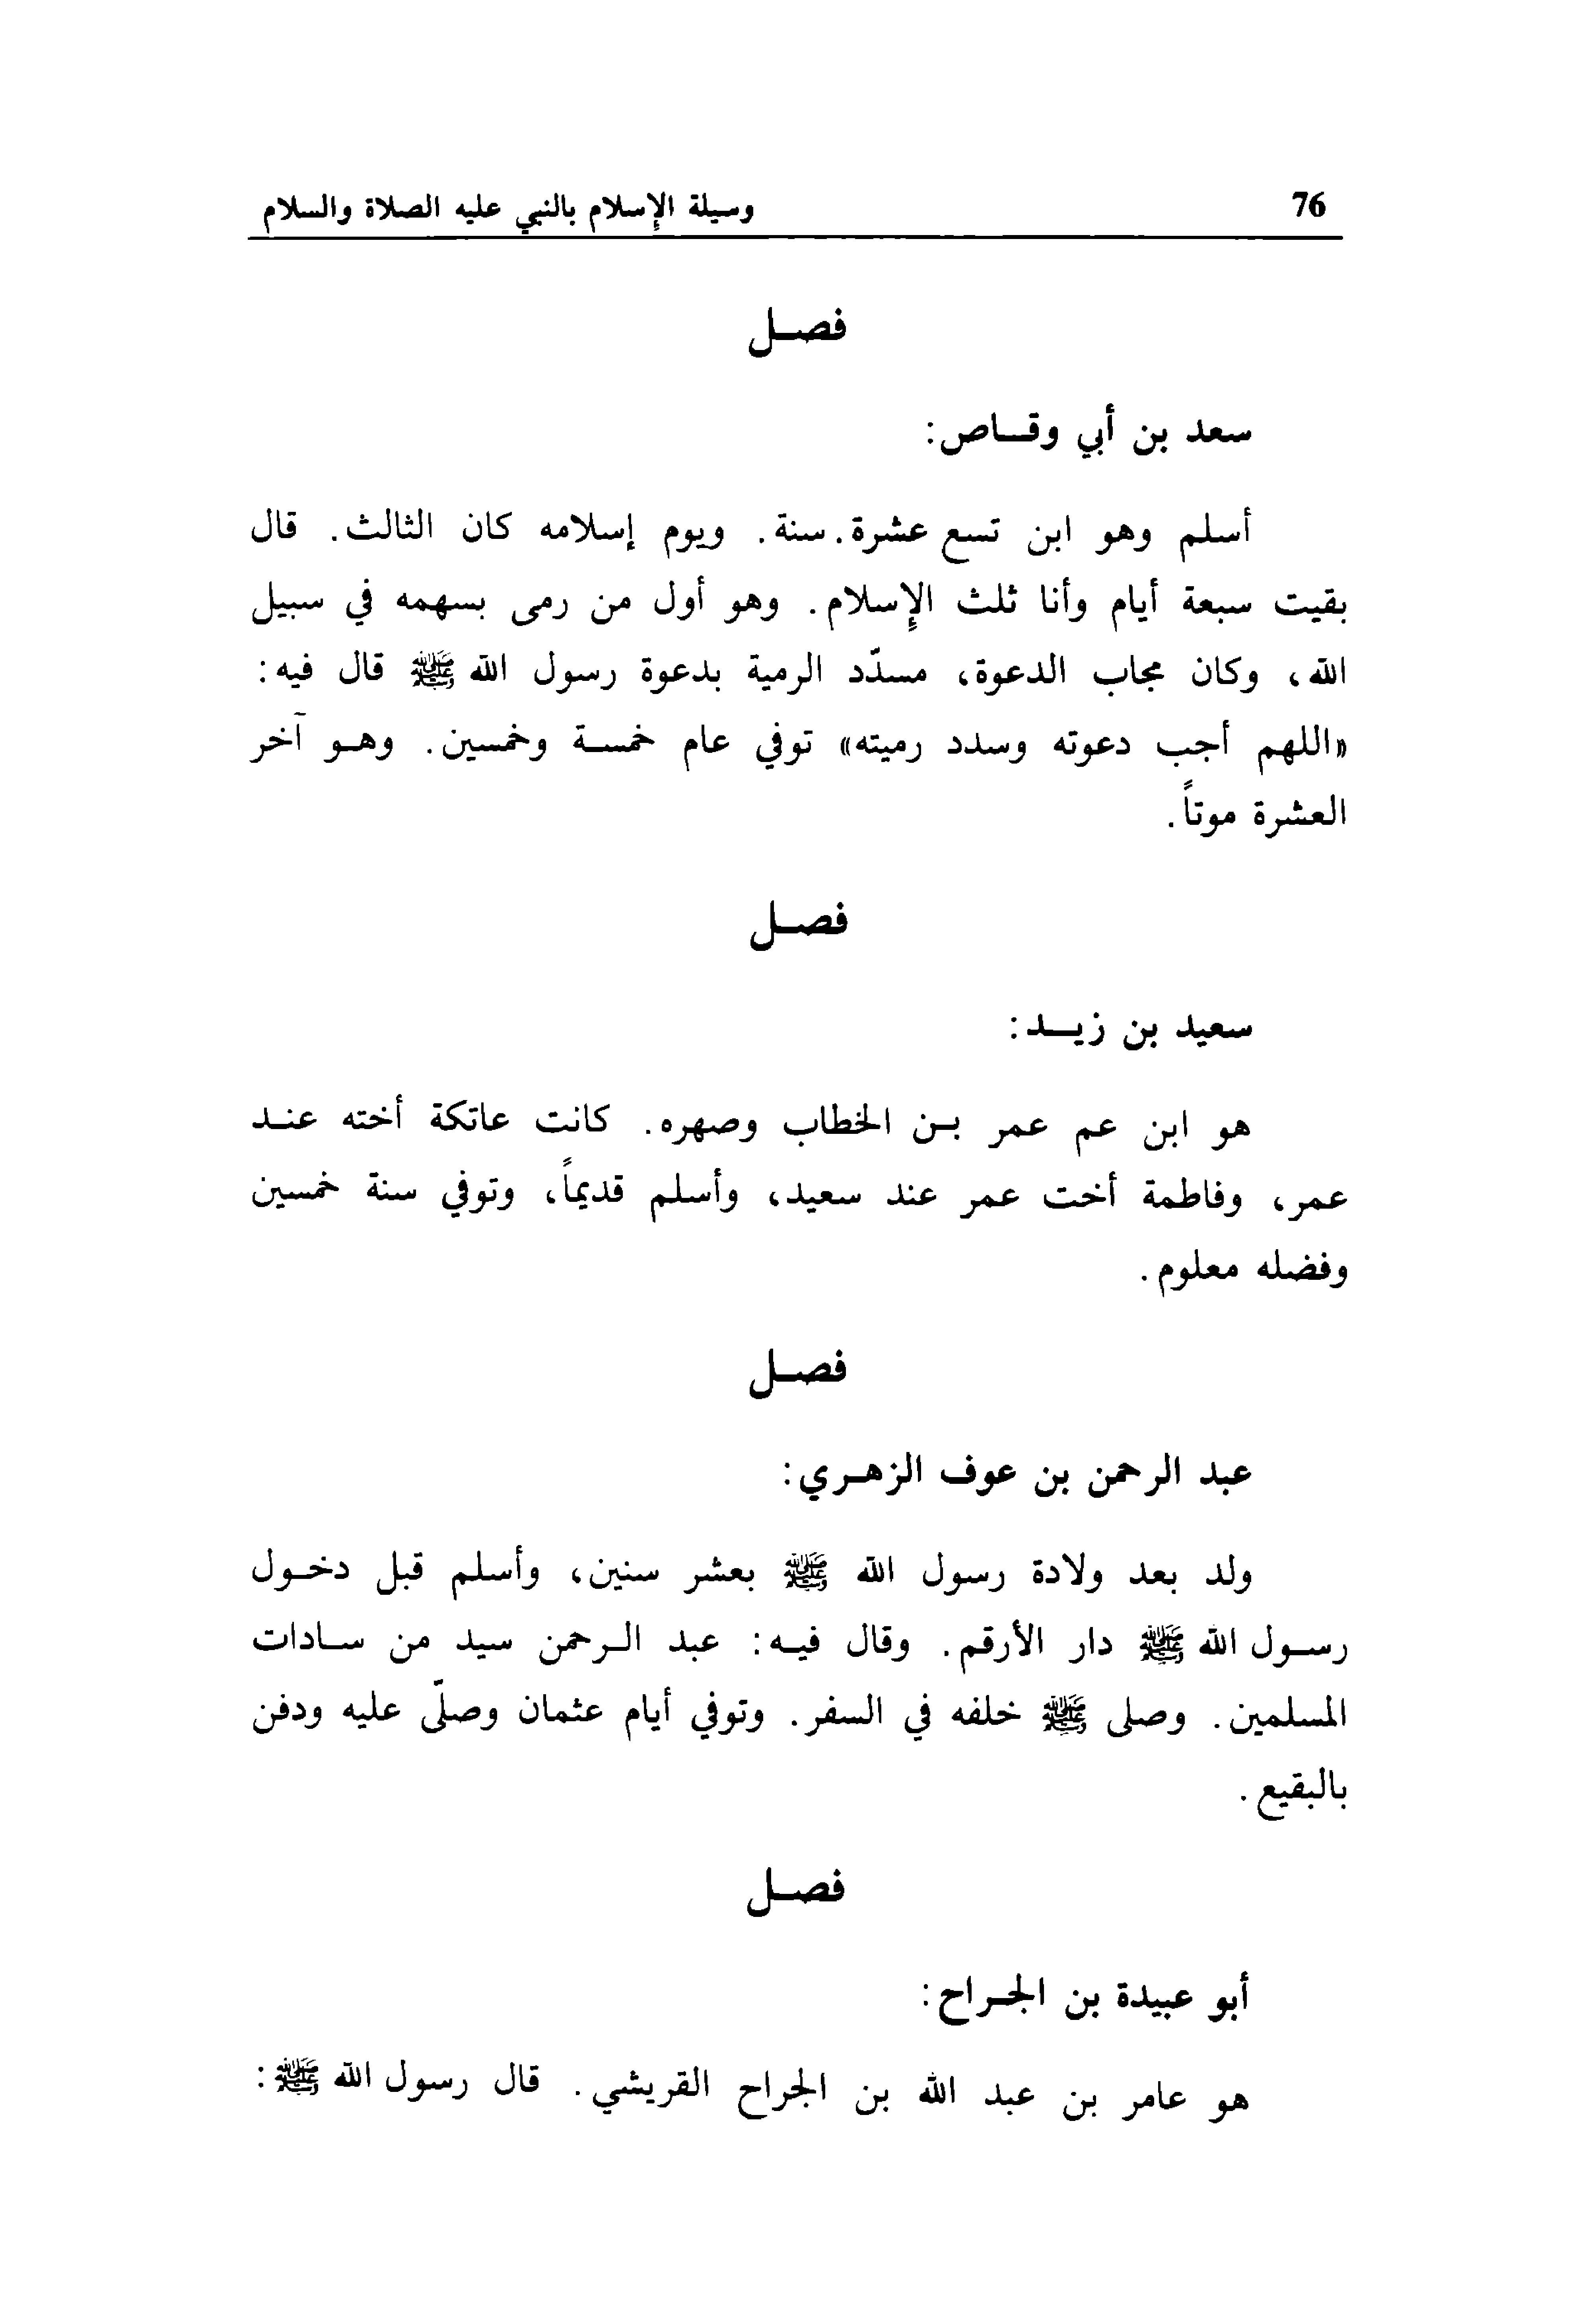 76
وسيلة الإسلام بالنبي عليه الصلاة والسلام
فصل
سعد بن أبي وقاص:
أسلم وهو ابن تسع عشرة. سنة. ويوم إسلامه كان الثالث. قال
بقيت سبعة أيام وأنا ثلث الإسلام. وهو أول من رمى بسهمه في سبيل
الله، وكان مجاب الدعوة، مسدّد الرمية بدعوة رسول الله ﷺ قال فيه:
«اللهم أجب دعوته وسدد رميته» توفي عام خمسة وخمسين. وهو آخر
العشرة موتاً.
فصل
سعيد بن زيد:
هو ابن عم عمر بن الخطاب وصهره. كانت عاتكة أخته عند
عمر، وفاطمة أخت عمر عند سعيد، وأسلم قديماً، وتوفي سنة خمسين
وفضله معلوم.
فصل
عبد الرحمن بن عوف الزهري:
ولد بعد ولادة رسول الله ﷺ بعشر سنين، وأسلم قبل دخول
رسول الله ﷺ دار الأرقم. وقال فيه: عبد الرحمن سيد من سادات
المسلمين. وصلى ﷺ خلفه في السفر. وتوفي أيام عثمان وصلّى عليه ودفن
بالبقيع.
فصل
أبو عبيدة بن الجراح:
هو عامر بن عبد الله بن الجراح القريشي. قال رسول الله ﷺ: